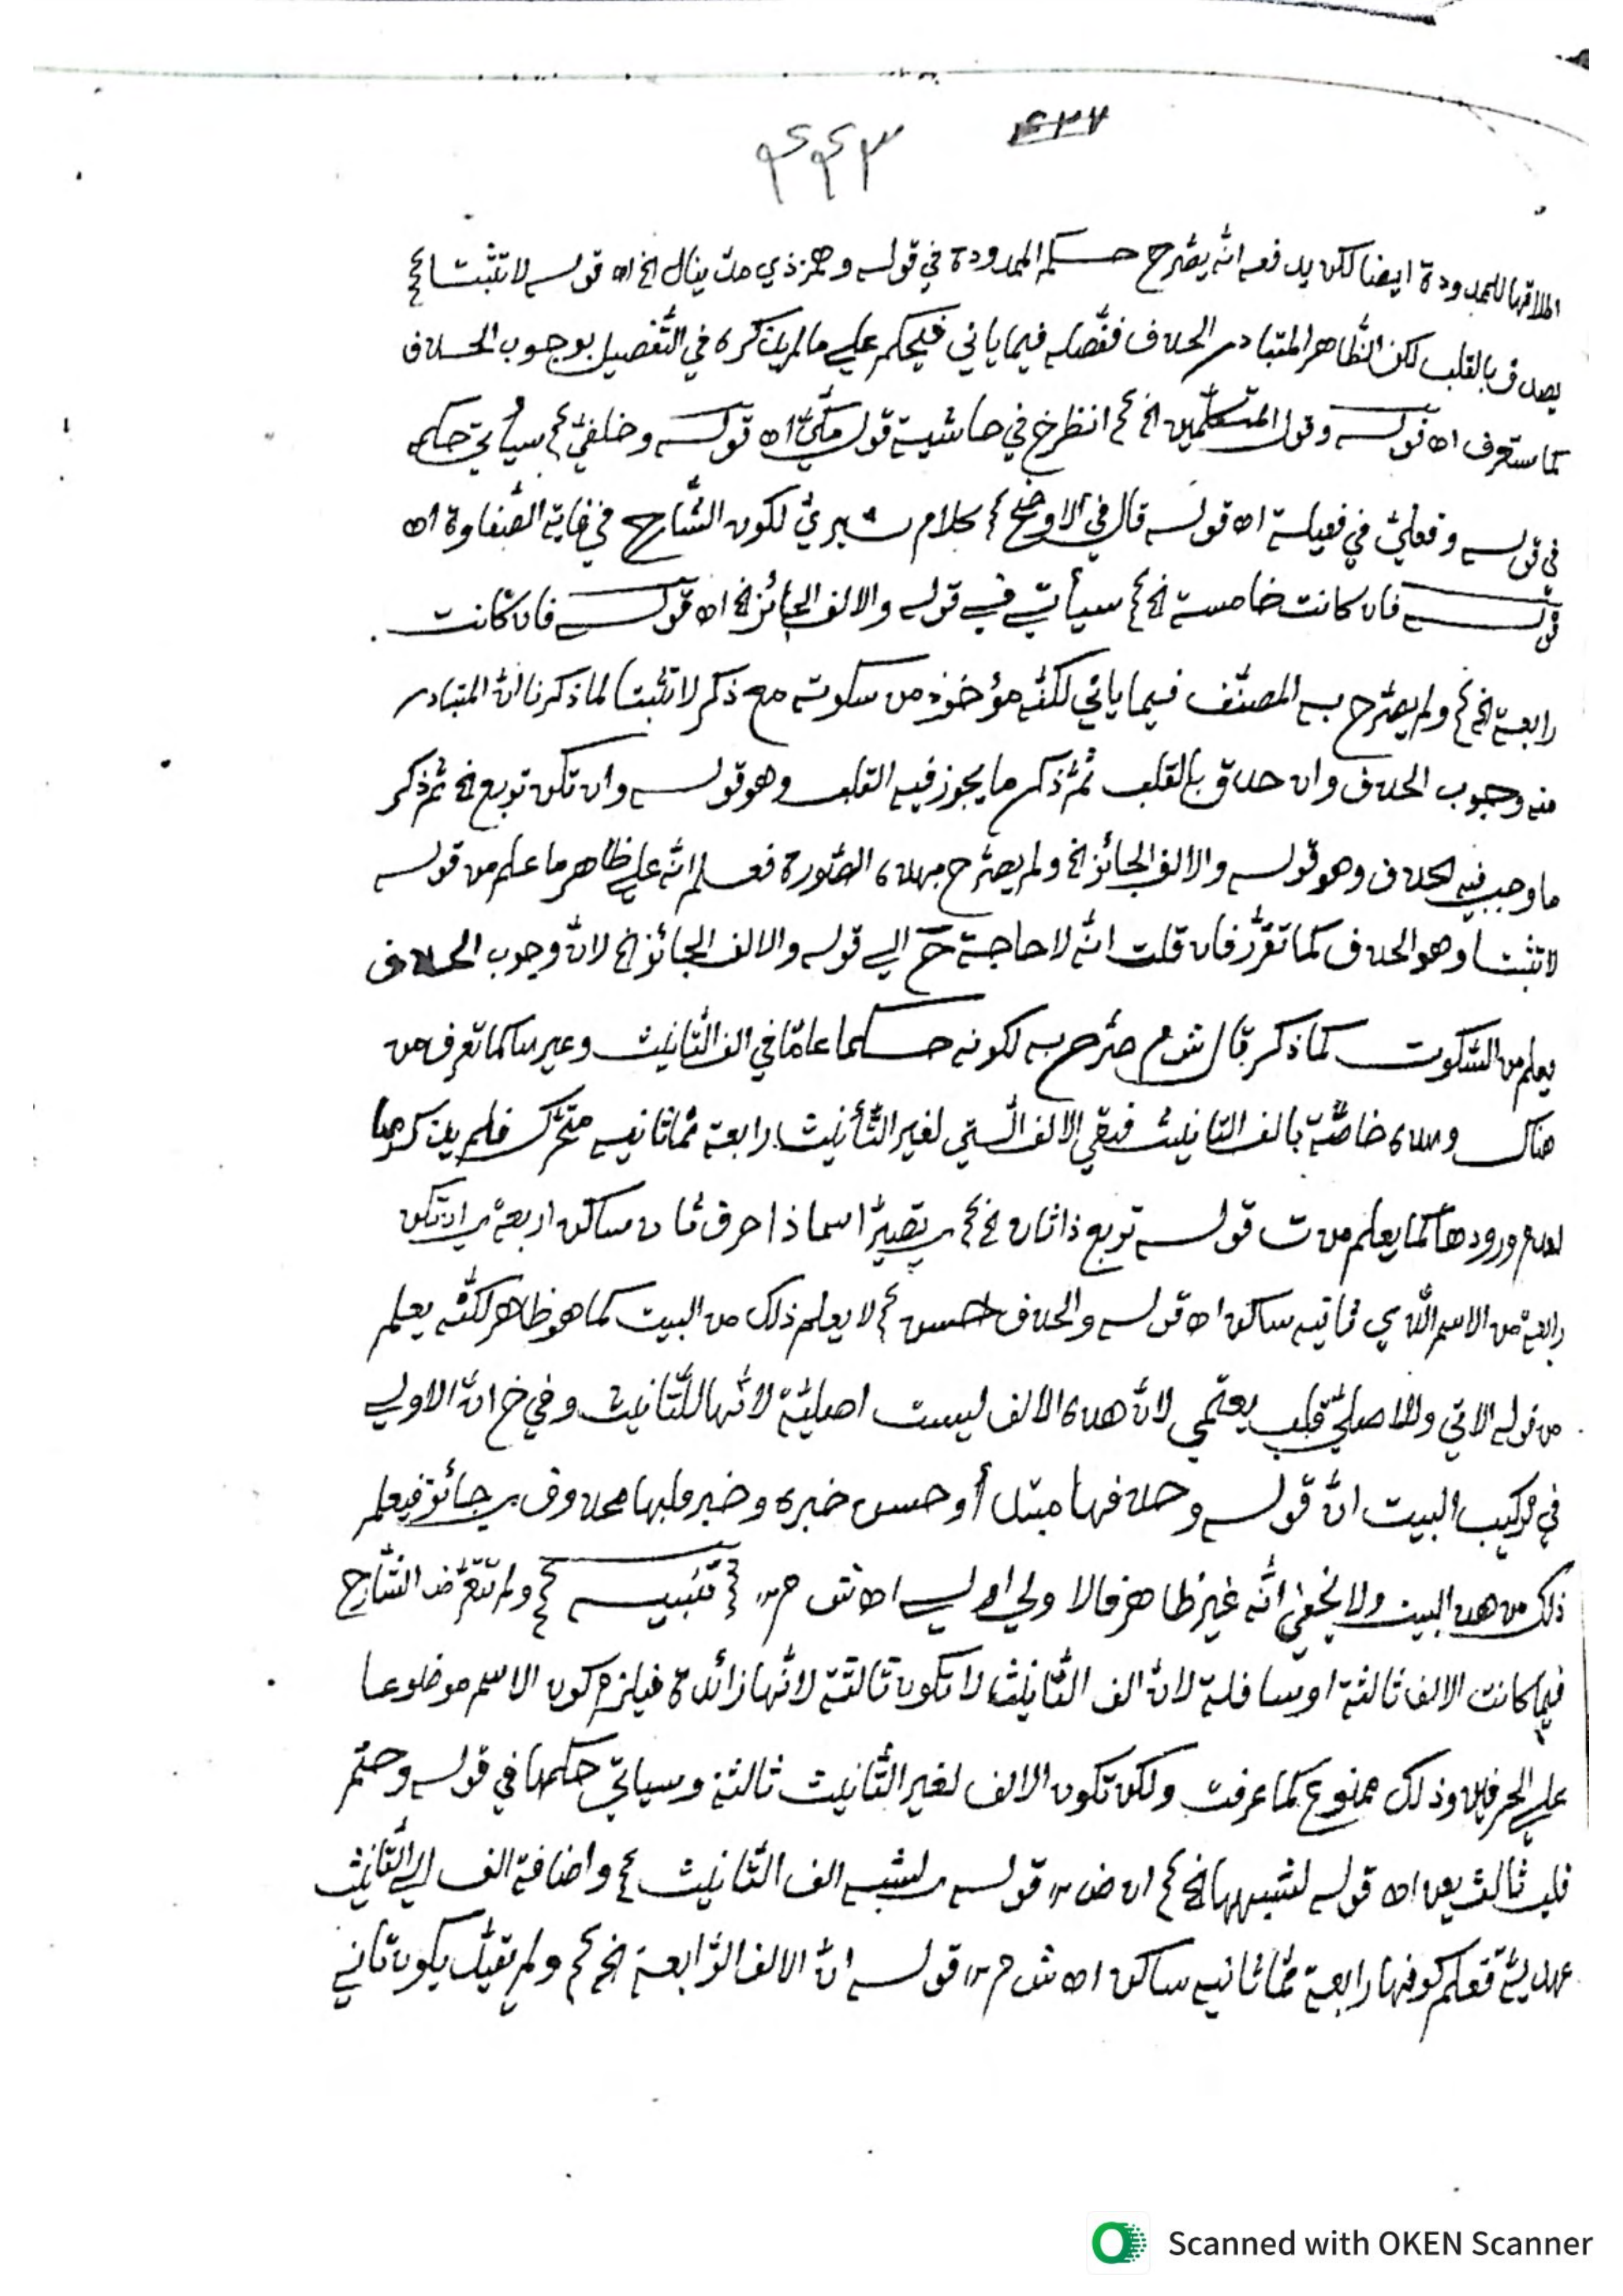 ٤٣٧
٤٤٣
للممدودة ايضا لكن يدفعه انه يصرح حكم الممدودة في قوله وهمز ذي مد ينال الخ اه قوله لا تثبتا
يصدق بالقلب لكن الظاهر المتبادر الحذف ففصله فيما ياتي فيحكم على ما لم يذكره في التفصيل بوجوب الحذف
كما ستعرف اه قوله وقول المتكلمين الخ انظر خ في حاشية قول مكي اه قوله وخليفي سيأتي حكمه
في قوله وفعلي في فعيلة اه قوله قال في الاوضح كلام لكون الشارح في غاية اه
قوله فان كانت خامسة الخ سيأتي في قوله والالف الجائز الخ اه قوله فان كانت
رابعة الخ ولم يصرح به المصنف فيما ياتي لكنه مؤخوذ من سكوته مع ذكر لا تثبتا لما ذكرنا ان المتبادر
منه وجوب الحذف وان صدق بالقلب ثم ذكر ما يجوز فيه القلب وهو قوله وان تكن تربع الخ ثم ذكر
ما وجب فيه الحذف وهو قوله والالف الجائز الخ ولم يصرح بهذه الصورة فعلم انه على ظاهر ما علم من قوله
لا تثبتا وهو الحذف كما تقرر فان قلت انه لا حاجة ح الى قوله والالف الجائز الخ لان وجوب الحذف
يعلم من السكوت كما ذكر قال ش م صرح به لكونه حكما عاما في الف التانيث وغيرها كما تعرف من
هناك وهذه خاصة بالف التانيث فبقي الالف التي لغير التأنيث رابعة مما ثانيه متحرك فلم يذكرها
لعدم ورودها كما يعلم من ت قوله تربع ذا ثان الخ تصير اسما ذا حرف ثان ساكن اربعة ان تكن
رابعة من الاسم الذي ثانيه ساكن اه قوله والحذف احسن لا يعلم ذلك من البيت كما هو ظاهر لكنه يعلم
من قوله الاتي وللاصلي قلب يعتمي لان هذه الالف ليست اصلية لانها للتانيث وفي خ ان الاولى
في تركيب البيت ان قوله وحذفها مبتدأ وحسن خبره وخبر قلبها محذوف جائز فيعلم
ذلك من هذ البيت ولا يخفى انه غير ظاهر فالاولى اولى اه ش م ر تنبيه ولم تتعرض الشارح
فيما كانت الالف ثالثة او سافلة لان الف التانيث لا تكون ثالثة لانها زائدة فيلزم كون الاسم موضوعا
على الحرفين وذلك ممنوع كما عرفت ولكن تكون الالف لغير التانيث ثالثة وسياتي حكمها في قوله وحتم
قلب ثالث يعن اه قوله لشبهها الخ قوله لشبه الف التانيث واضافة الف الى التانيث
عهدية فعلم كونها رابعة مما ثانيه ساكن اه ش م ر قوله ان الالف الرابعة الخ ولم يقيد بكون ثاني
Scanned with OKEN Scanner